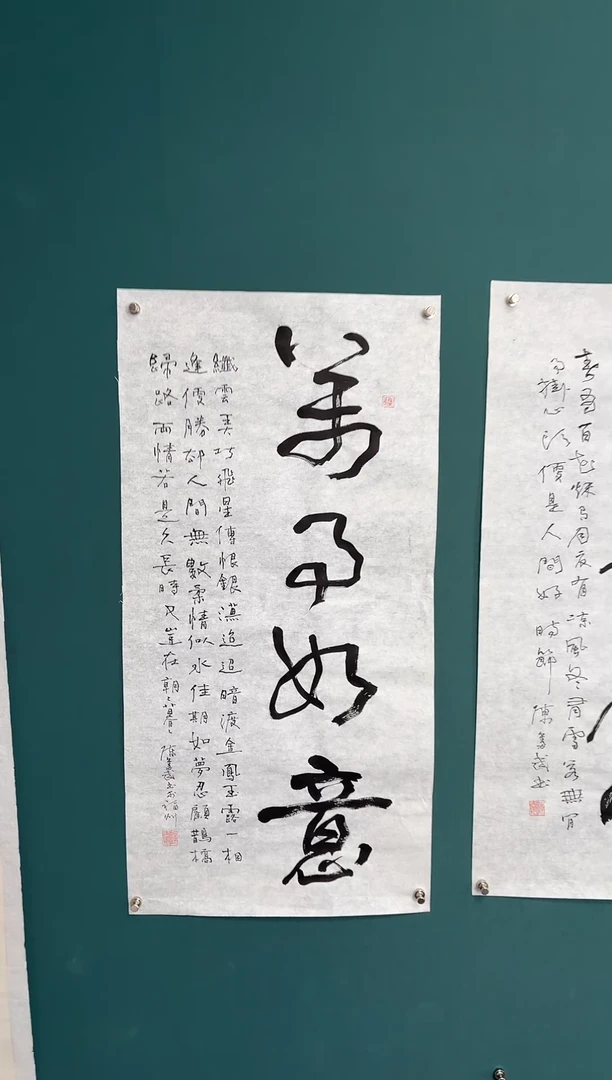 萬事如意
纖雲弄巧飛星傳恨銀漢迢迢暗渡金鳳玉露一相
逢便勝却人間無數柔情似水佳期如夢忍顧鵲橋
歸路兩情若是久長時又豈在朝々暮々 陳书於福州
春有百花秋有月夏有凉風冬有雪若無閒
事掛心頭便是人間好時節 陳书